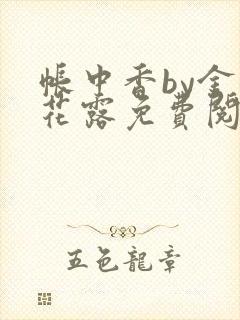 帳中香by金
花露免費閱
五色龍章